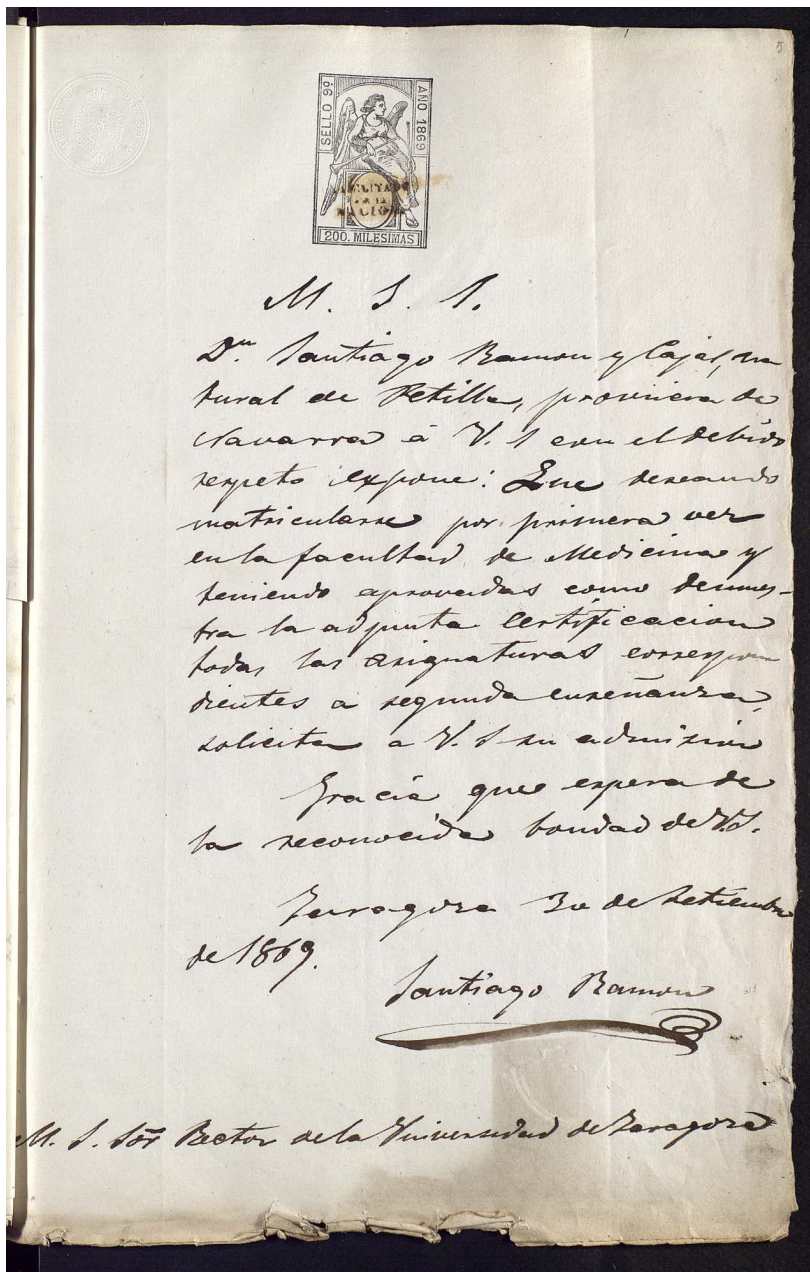 5
SELLO 9º
AÑO 1869
HABILITADO
POR LA
NACION
200. MILESIMAS
M. I. S.
Dn. Santiago Ramon y Cajal, na
tural de Petilla, provincia de
Navarra á V. S con el debido
respeto expone: Que deseando
matricularse por primera vez
en la facultad de Medicina y
teniendo aprovadas como demues-
tra la adjunta Certificacion
todas las asignaturas correspon
dientes a segunda enseñanza,
solicita a V. S su admision
Gracia que espera de
la reconocida bondad de V.S.
Zaragoza 30 de Setiembre
de 1869.
Santiago Ramon
M. I. Sor Rector de la Universidad de Zaragoza